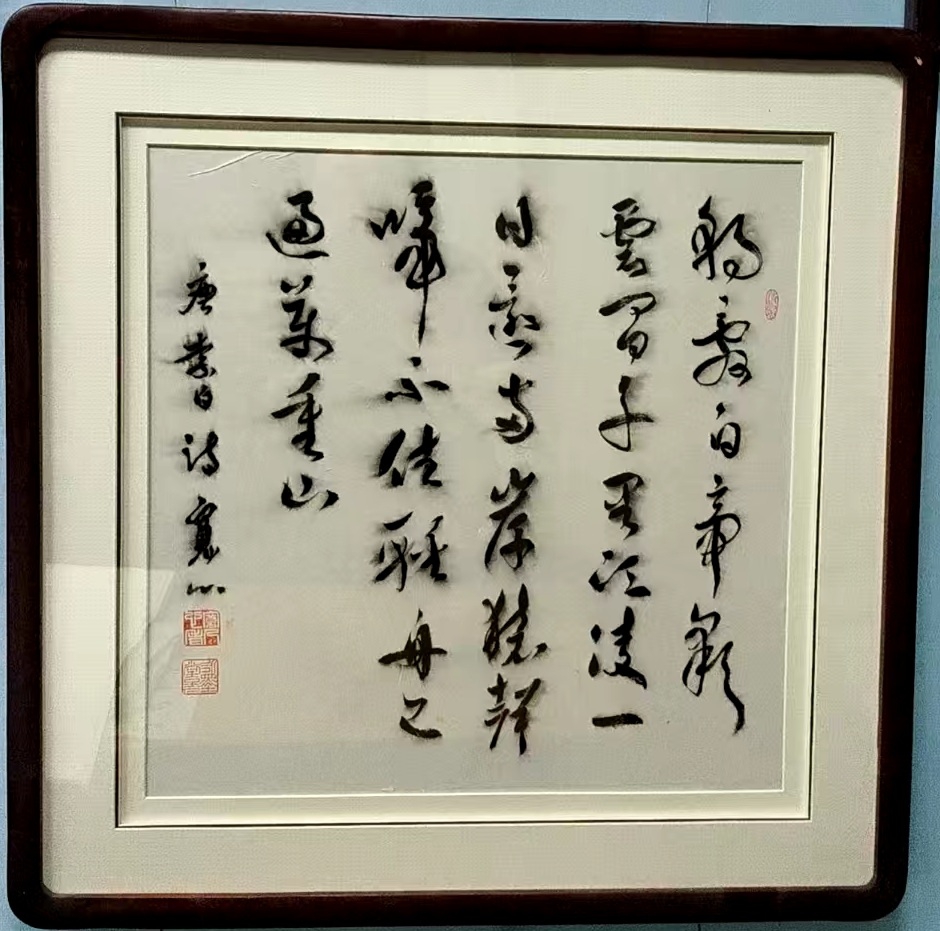 朝辭白帝彩
雲間千里江陵一
日還兩岸猿聲
啼不住輕舟已
過萬重山
唐李白詩